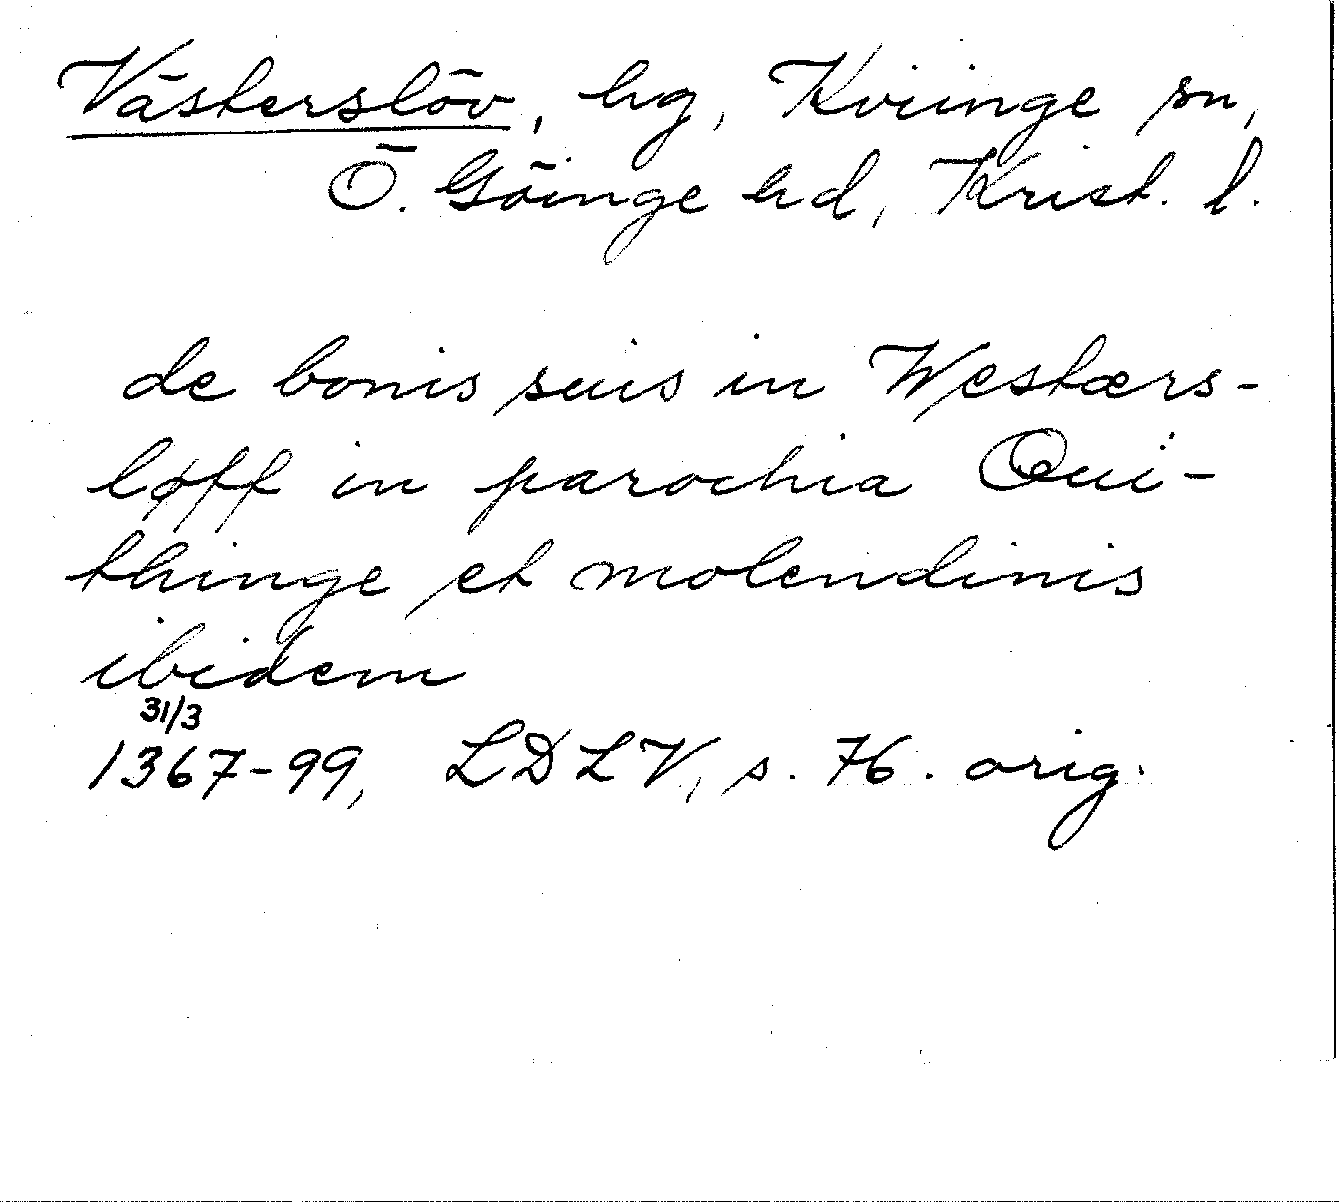 Västerslöv, hg, Kviinge sn,
Ö. Göinge hd, Krist. l.
de bonis suis in Westærs-
løff in parochia Qui-
thinge et molendinis
ibidem
31/3
1367-99, LDLV, s. 76. orig.